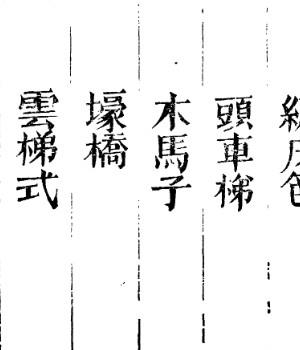 頭車梯
木馬子
壕橋
雲梯式